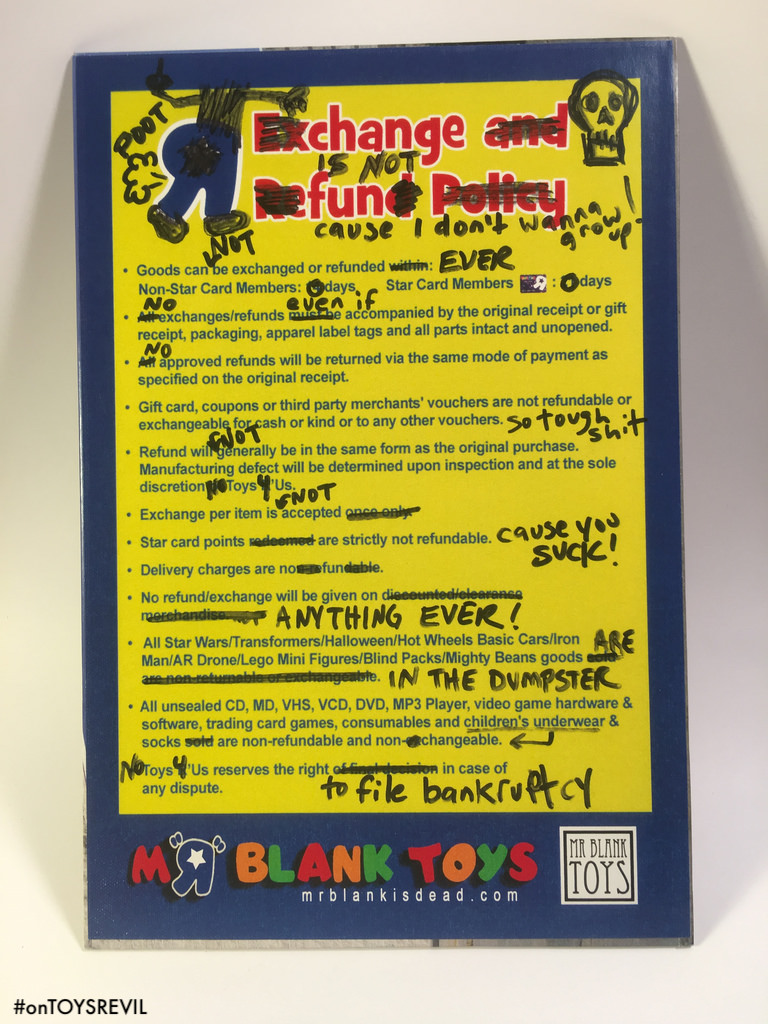 POOT
Exchange and
IS NOT
Refund Policy
cause I don't wanna grow up!
NOT
• Goods can be exchanged or refunded within: EVER
Non-Star Card Members: 0 days Star Card Members R : 0 days
NO even if
• All exchanges/refunds must be accompanied by the original receipt or gift
receipt, packaging, apparel label tags and all parts intact and unopened.
NO
• All approved refunds will be returned via the same mode of payment as
specified on the original receipt.
• Gift card, coupons or third party merchants' vouchers are not refundable or
exchangeable for cash or kind or to any other vouchers. so tough shit
NOT
• Refund will generally be in the same form as the original purchase.
Manufacturing defect will be determined upon inspection and at the sole
discretion NO Toys 4 'Us.
NOT
• Exchange per item is accepted once only.
• Star card points redeemed are strictly not refundable. cause you SUCK!
• Delivery charges are non-refundable.
• No refund/exchange will be given on discounted/clearance
merchandise. ANYTHING EVER!
• All Star Wars/Transformers/Halloween/Hot Wheels Basic Cars/Iron ARE
Man/AR Drone/Lego Mini Figures/Blind Packs/Mighty Beans goods sold
are non-returnable or exchangeable. IN THE DUMPSTER
• All unsealed CD, MD, VHS, VCD, DVD, MP3 Player, video game hardware &
software, trading card games, consumables and children's underwear &
socks sold are non-refundable and non-exchangeable.
NO Toys 4 'Us reserves the right of final decision in case of
any dispute. to file bankruptcy
MR BLANK TOYS
mrblankisdead.com
MR BLANK
TOYS
#onTOYSREVIL